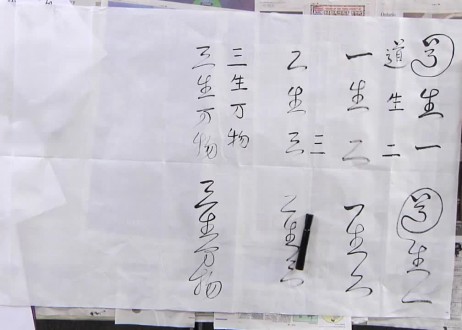 道生一
道生二
一生二
三
二生三
三生万物
三生万物
道生一
一生二
二生三
三生万物